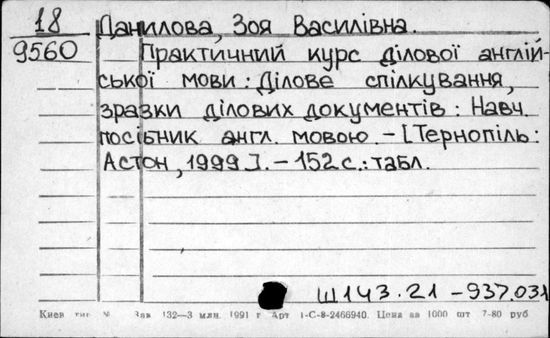 18 Данилова, Зоя Василівна.
9560 Практичний курс ділової англій-
ської мови: Ділове спілкування,
зразки ділових документів: Навч.
посібник англ. мовою. – [Тернопіль:
Астон, 1999]. – 152 с.: табл.
Ш143.21-937.031
Киев тип. Зак 132—3 млн. 1991 г Арт 1-С-8-2466940. Цена за 1000 шт 7-80 руб